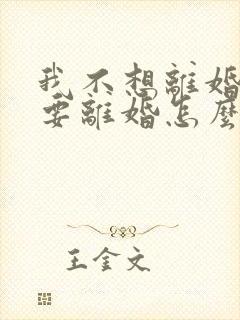 我不想離婚
要離婚怎麼
王金文